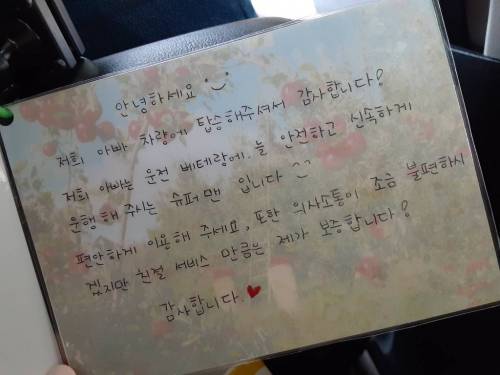 안녕하세요 ◡̈
저희 아빠 차량에 탑승해주셔서 감사합니다!
저희 아빠는 운전 베테랑에, 늘 안전하고 신속하게
운행해 주시는 슈퍼맨 입니다 ^^
편안하게 이용해 주세요, 또한 의사소통이 조금 불편하시
겠지만 친절 서비스 만큼은 제가 보증합니다!
감사합니다 ♥